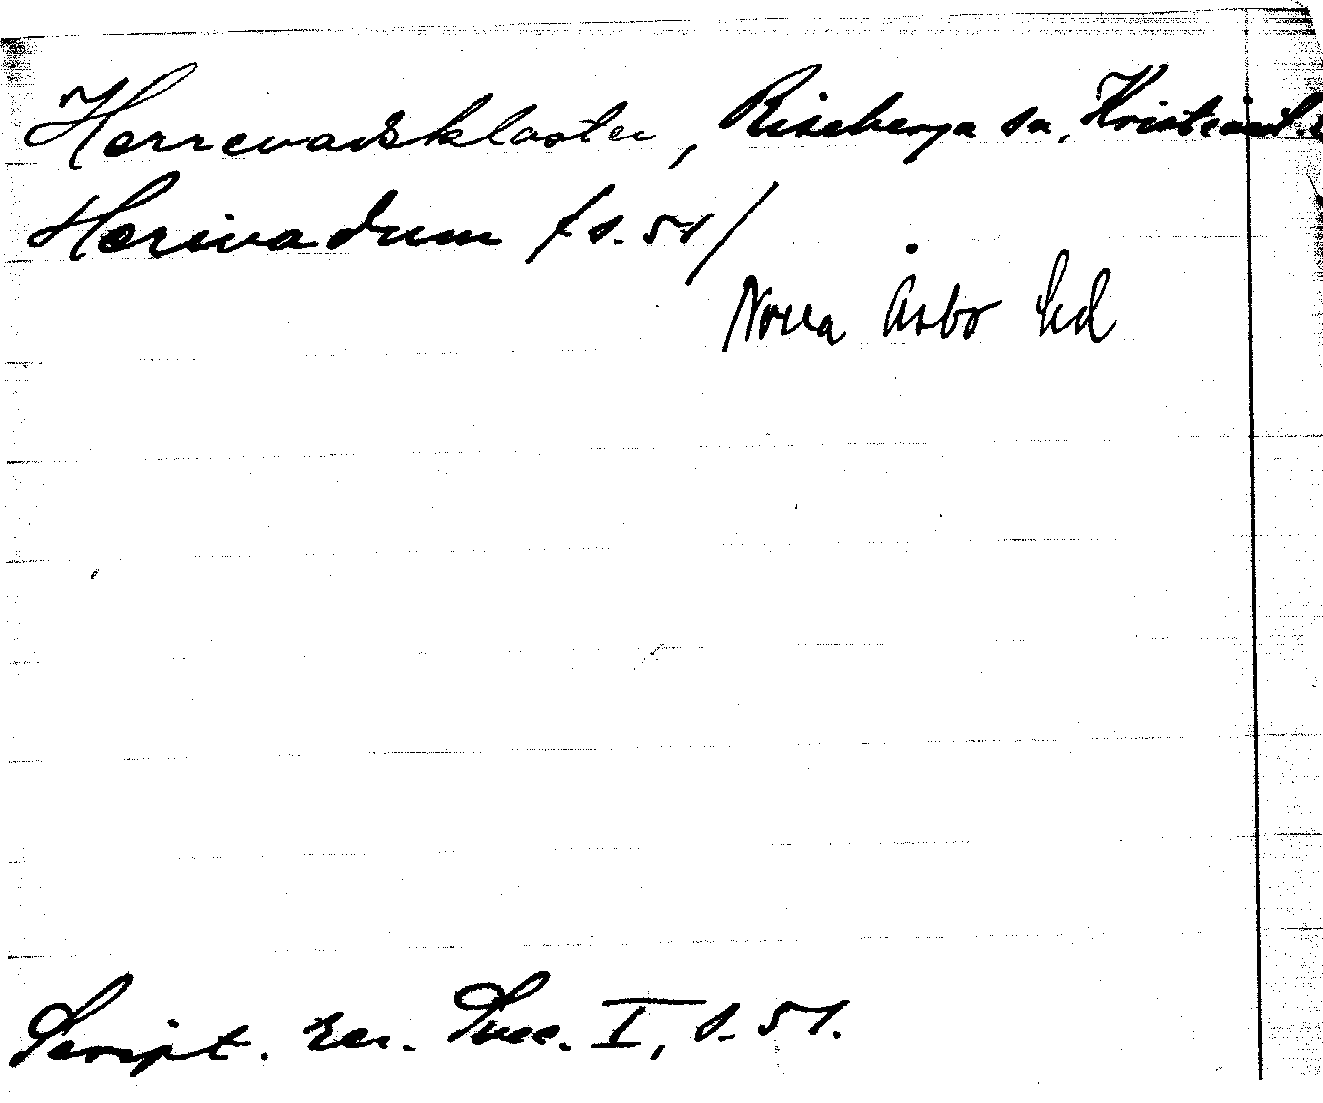 Herrevadskloster, Riseberga sn, Kristianst.
Herivadum /s. 51/
Norra Åsbo hd
Script. rer. Svec. I, s. 51.